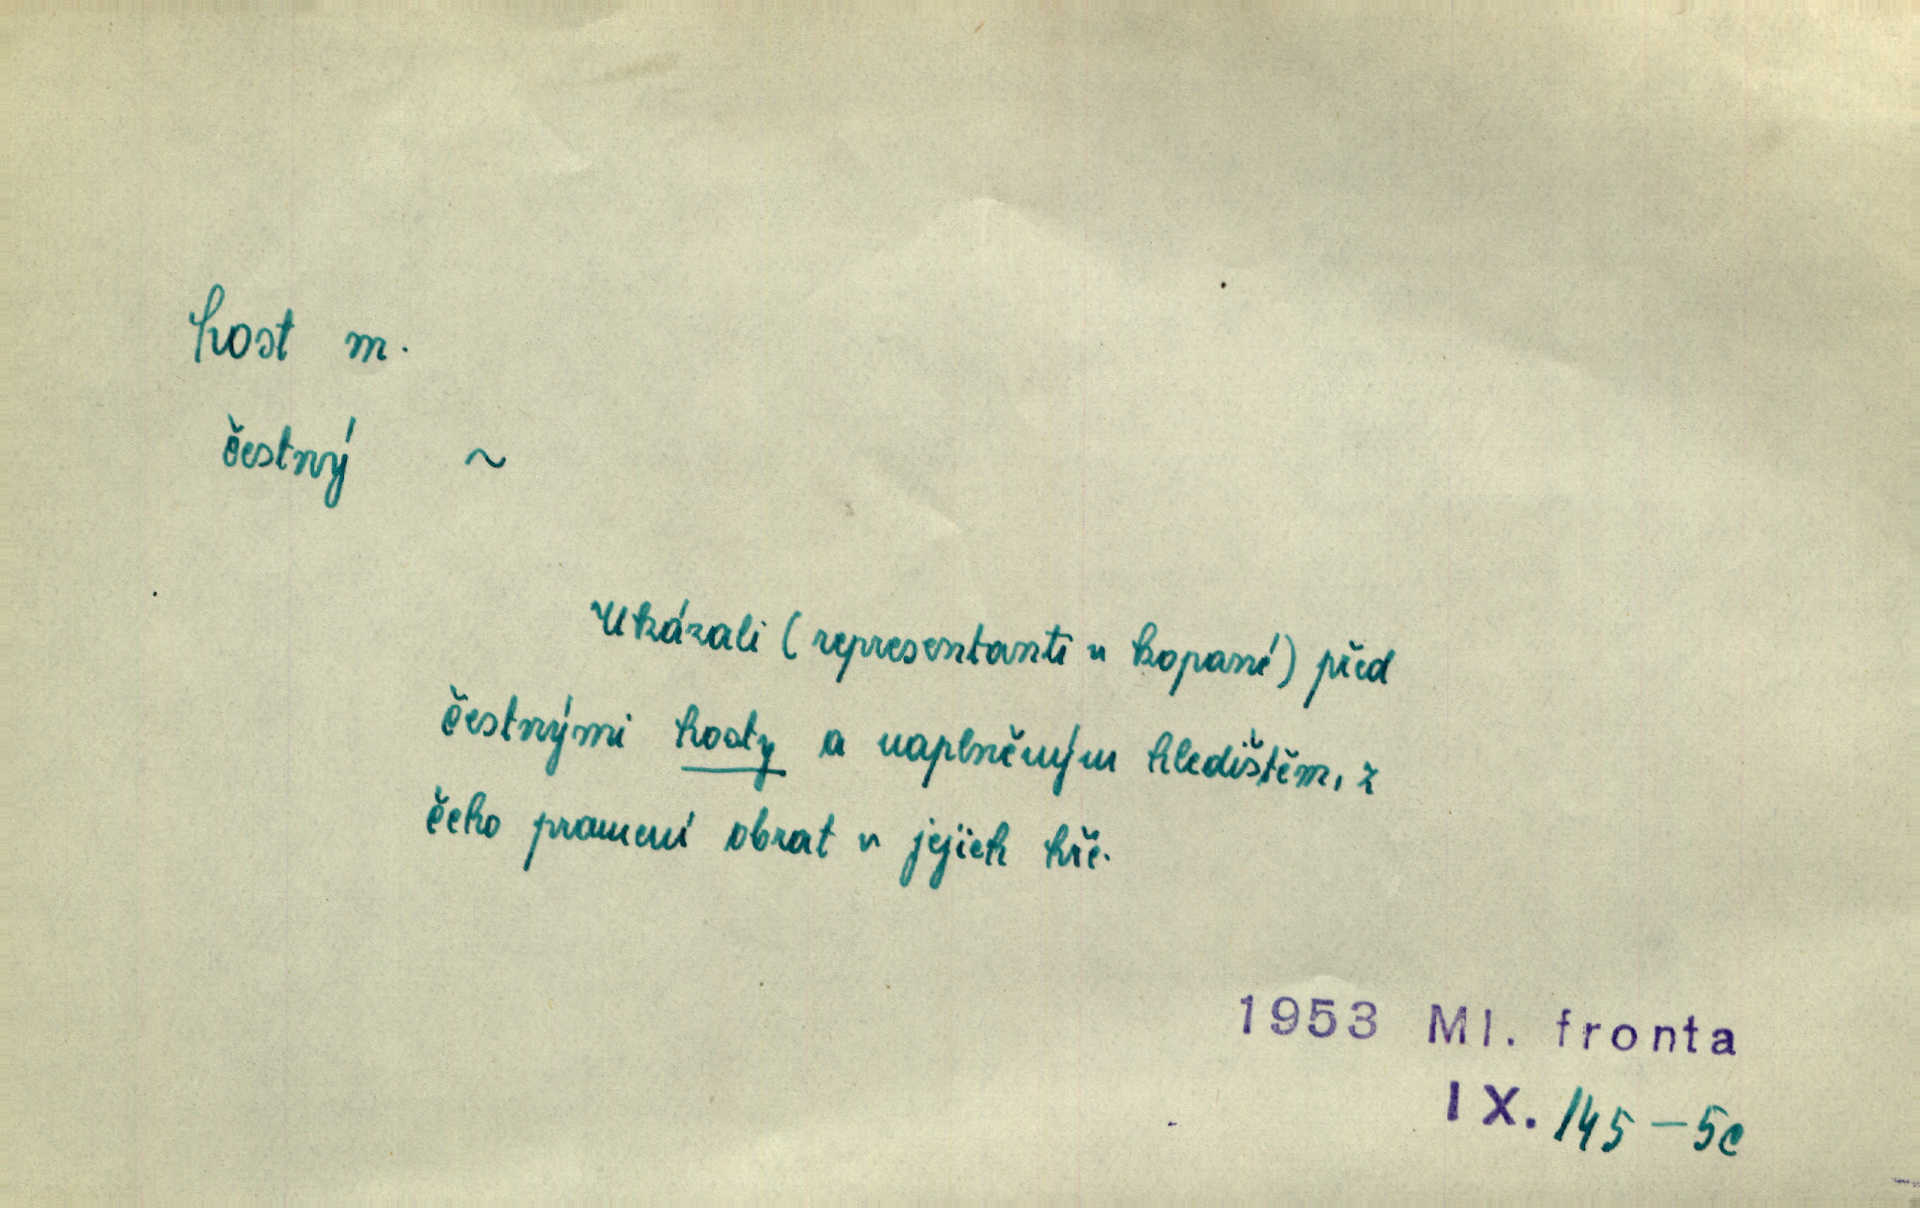 host m.
čestný ~
Ukázali (representanti v kopané) před
čestnými hosty a naplněným hledištěm, z
čeho pramení obrat v jejich hře.
1953 Ml. fronta
IX. 145 – 5c